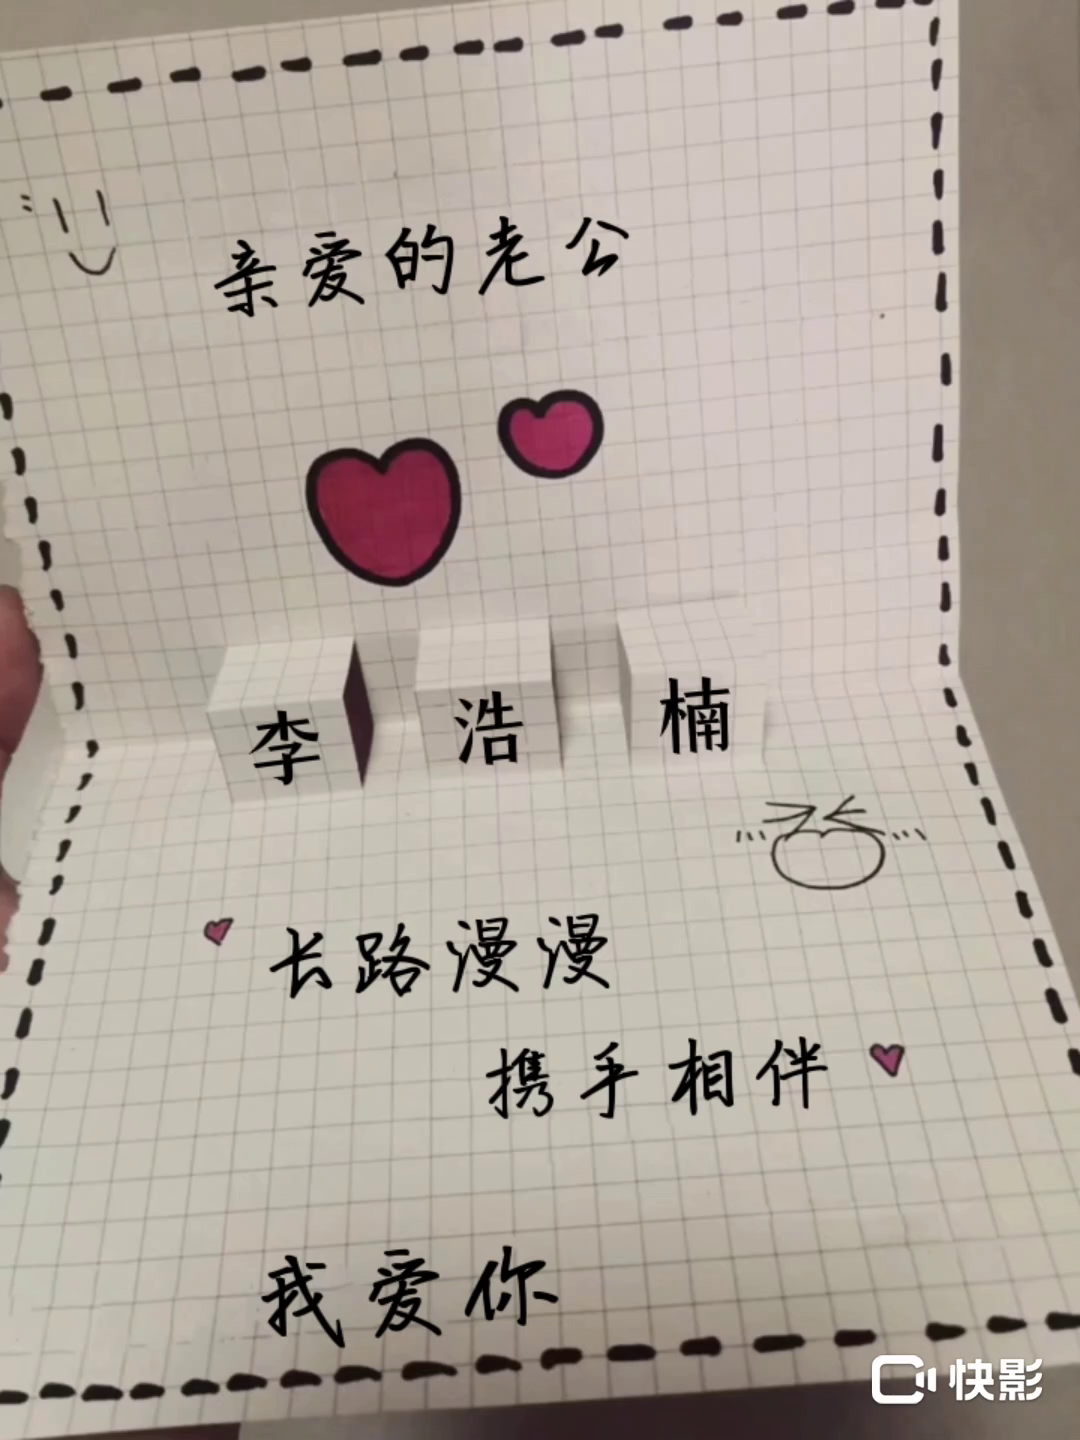 亲爱的老公
李浩楠
长路漫漫
携手相伴
我爱你
快影